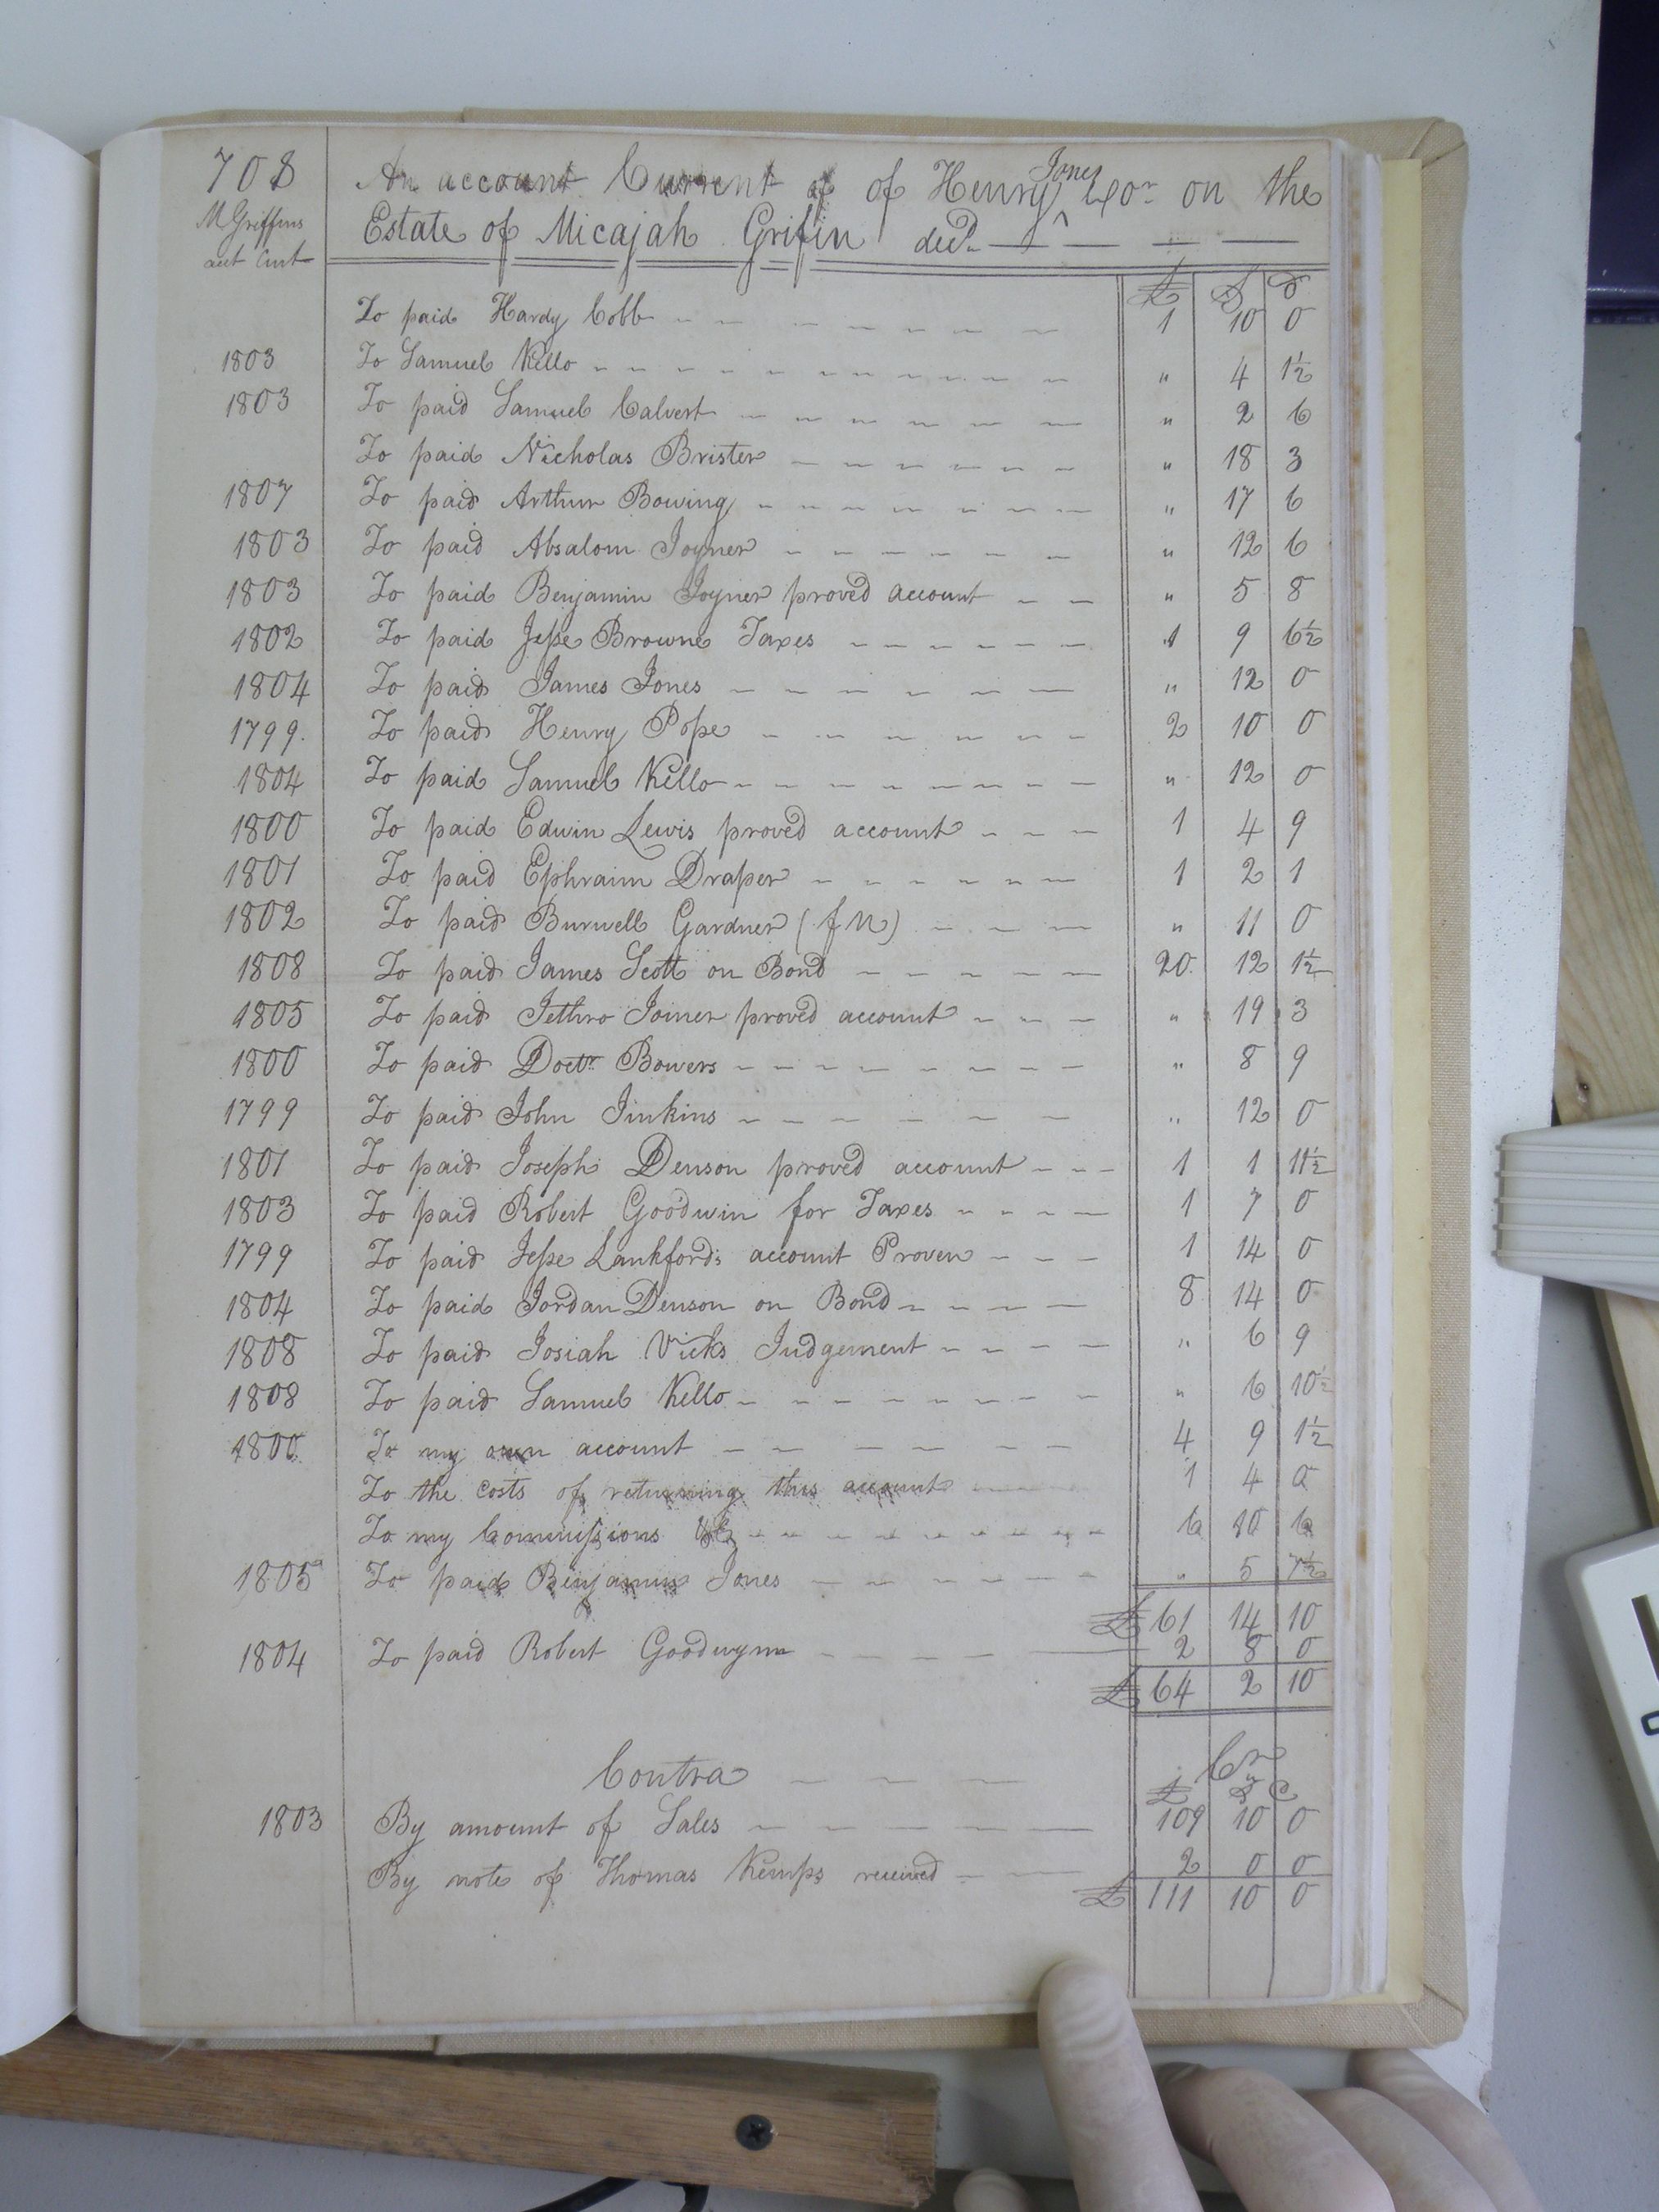 708
M Griffins
acct Curt
An account Current of of Henry Jones Exor on the
Estate of Micajah Grifin decd
£ S d
To paid Hardy Cobb 1 10 0
1803 To Samuel Kello " 4 1½
1803 To paid Samuel Calvert " 2 6
To paid Nicholas Brister " 18 3
1807 To paid Arthur Bowing " 17 6
1803 To paid Absalom Joyner " 12 6
1803 To paid Benjamin Joyner proved account " 5 8
1802 To paid Jesse Browne Taxes 1 9 6½
1804 To paid James Jones " 12 0
1799. To paid Henry Pope 2 10 0
1804 To paid Samuel Kello " 12 0
1800 To paid Edwin Lewis proved account 1 4 9
1801 To paid Ephraim Draper 1 2 1
1802 To paid Burwell Gardner (f N) " 11 0
1808 To paid James Scott on Bond 20. 12 1½
1805 To paid Jethro Joiner proved account " 19 3
1800 To paid Doctr. Bowers " 8 9
1799 To paid John Jinkins " 12 0
1801 To paid Joseph Denson proved account 1 1 11½
1803 To paid Robert Goodwin for Taxes 1 7 0
1799 To paid Jesse Lankfords account Proven 1 14 0
1804 To paid Jordan Denson on Bond 8 14 0
1808 To paid Josiah Vicks Judgement " 6 9
1808 To paid Samuel Kello " 6 10½
1800. To my own account 4 9 1½
To the costs of returning this account 1 4 0
To my Commissions &c 6 10 6
1805 To paid Benjamin Jones " 5 7½
£ 61 14 10
1804 To paid Robert Goodwynn 2 8 0
£ 64 2 10
Contra Cr
£
1803 By amount of Sales 109 10 0
By note of Thomas Kemps received 2 0 0
£ 111 10 0